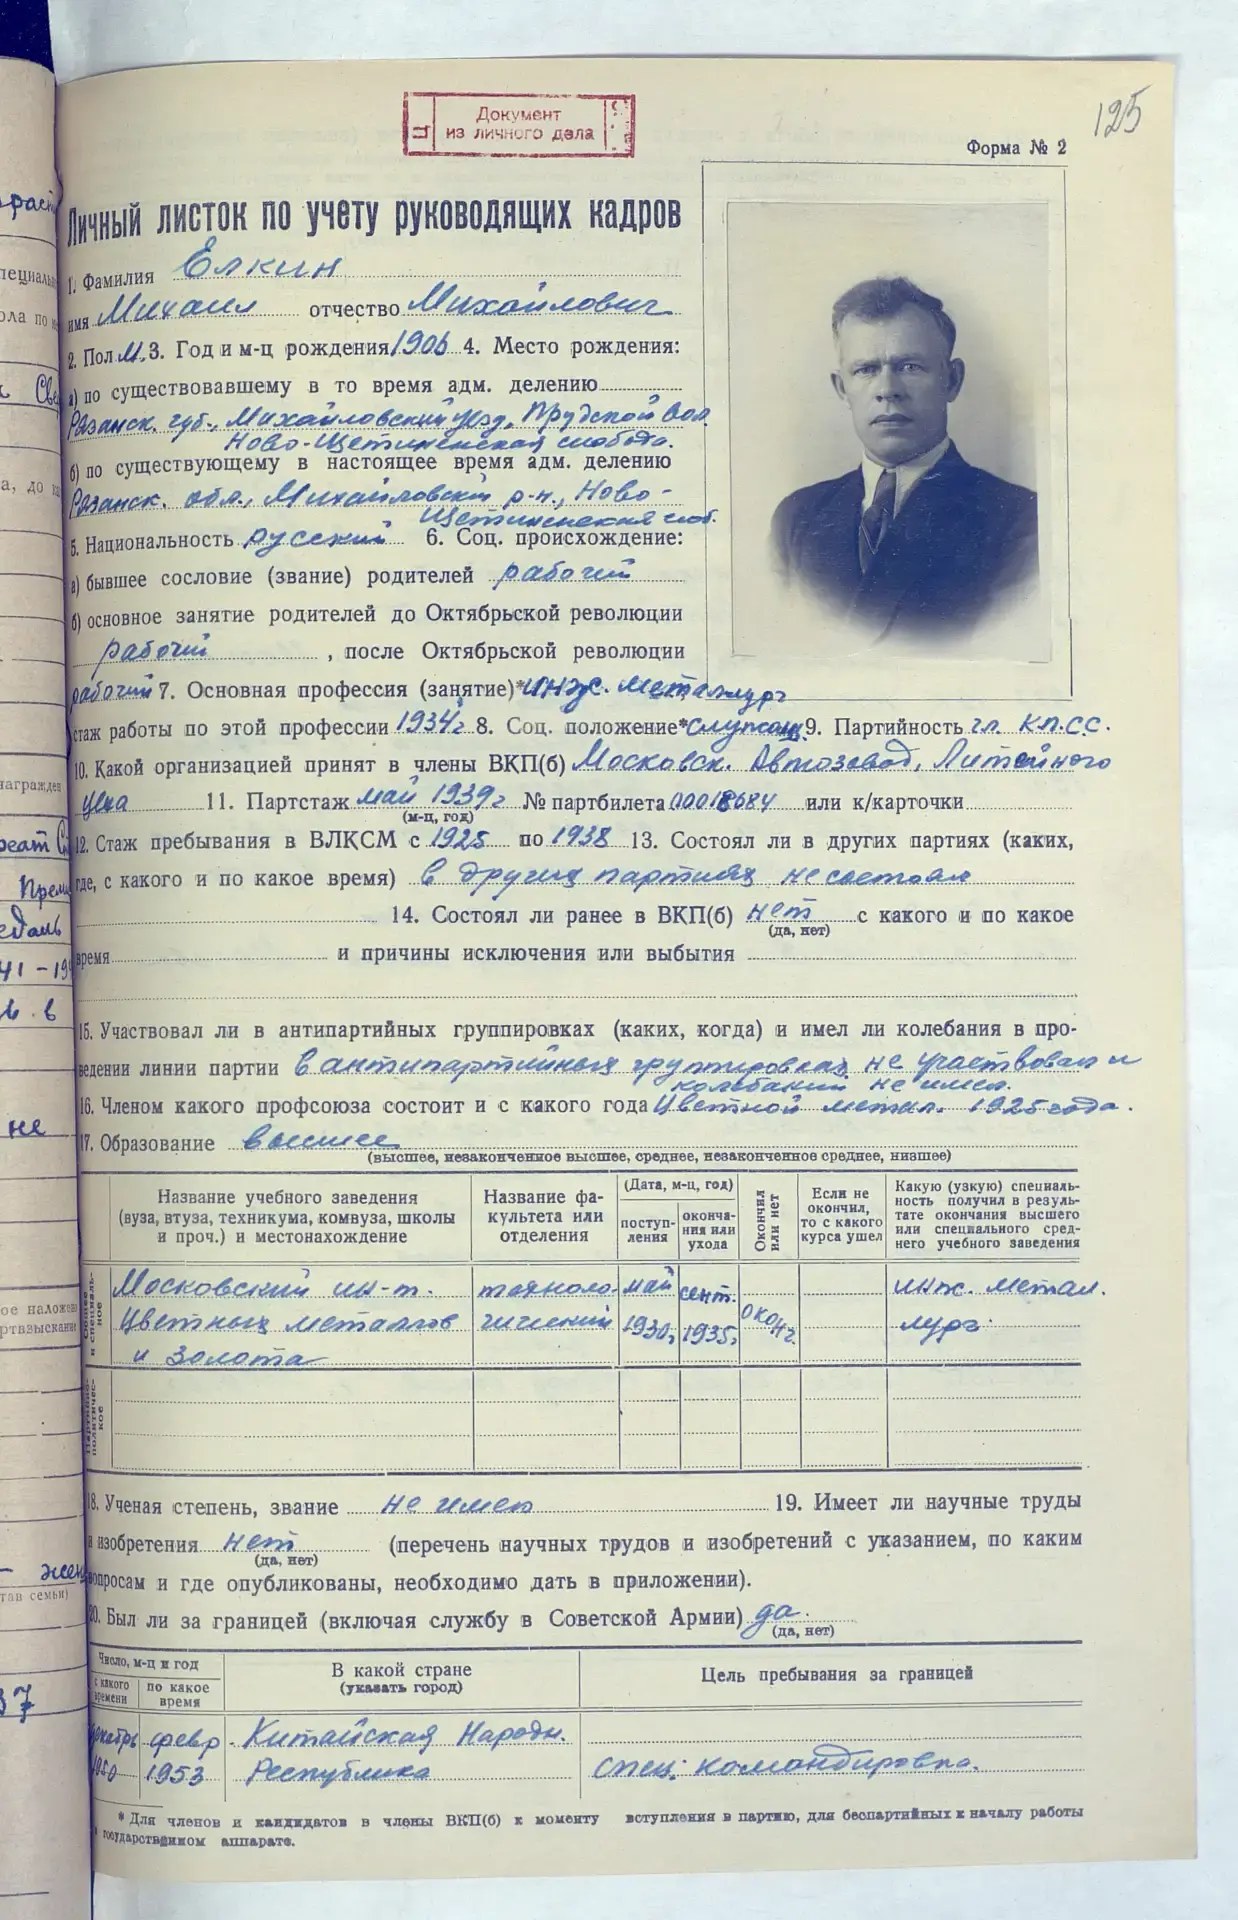 125
Документ
из личного дела
Форма № 2
Личный листок по учету руководящих кадров
1. Фамилия Ёлкин
имя Михаил отчество Михайлович
2. Пол М. 3. Год и м-ц рождения 1906 4. Место рождения:
а) по существовавшему в то время адм. делению
Рязанск. губ., Михайловский уезд, Прудской вол.
Ново-Щетиненская слобода.
б) по существующему в настоящее время адм. делению
Рязанск. обл., Михайловский р-н., Ново-
Щетиненская слоб.
5. Национальность русский 6. Соц. происхождение:
а) бывшее сословие (звание) родителей рабочий
б) основное занятие родителей до Октябрьской революции
рабочий , после Октябрьской революции
рабочий 7. Основная профессия (занятие)* инж. металлург
стаж работы по этой профессии 1934 г 8. Соц. положение* служащ 9. Партийность чл. КПСС.
10. Какой организацией принят в члены ВКП(б) Московск. Автозавод, Литейного
цеха 11. Партстаж май 1939 г № партбилета 00018684 или к/карточки
(м-ц, год)
12. Стаж пребывания в ВЛКСМ с 1925 по 1938 13. Состоял ли в других партиях (каких,
где, с какого и по какое время) в других партиях не состоял
14. Состоял ли ранее в ВКП(б) нет с какого и по какое
(да, нет)
время и причины исключения или выбытия
15. Участвовал ли в антипартийных группировках (каких, когда) и имел ли колебания в про-
ведении линии партии в антипартийных группировках не участвовал и
колебаний не имел.
16. Членом какого профсоюза состоит и с какого года Цветной метал. 1925 года.
17. Образование высшее
(высшее, незаконченное высшее, среднее, незаконченное среднее, низшее)
Название учебного заведения (вуза, втуза, техникума, комвуза, школы и проч.) и местонахождение
Название фа-культета или отделения
(Дата, м-ц, год)
поступ-ления
оконча-ния или ухода
Окончил или нет
Если не окончил, то с какого курса ушел
Какую (узкую) специаль-ность получил в резуль-тате окончания высшего или специального сред-него учебного заведения
Московский ин-т. техноло- май сент. инж. метал.
Цветных металлов гический 1930 г. 1935 г. оконч. лург
и золота
18. Ученая степень, звание не имею 19. Имеет ли научные труды
и изобретения нет (перечень научных трудов и изобретений с указанием, по каким
(да, нет)
вопросам и где опубликованы, необходимо дать в приложении).
20. Был ли за границей (включая службу в Советской Армии) да.
(да, нет)
Число, м-ц и год
с какого времени
по какое время
В какой стране
(указать город)
Цель пребывания за границей
декабрь февр Китайская Народн.
1950 1953 Республика спец. командировка.
* Для членов и кандидатов в члены ВКП(б) к моменту вступления в партию, для беспартийных к началу работы
в государственном аппарате.